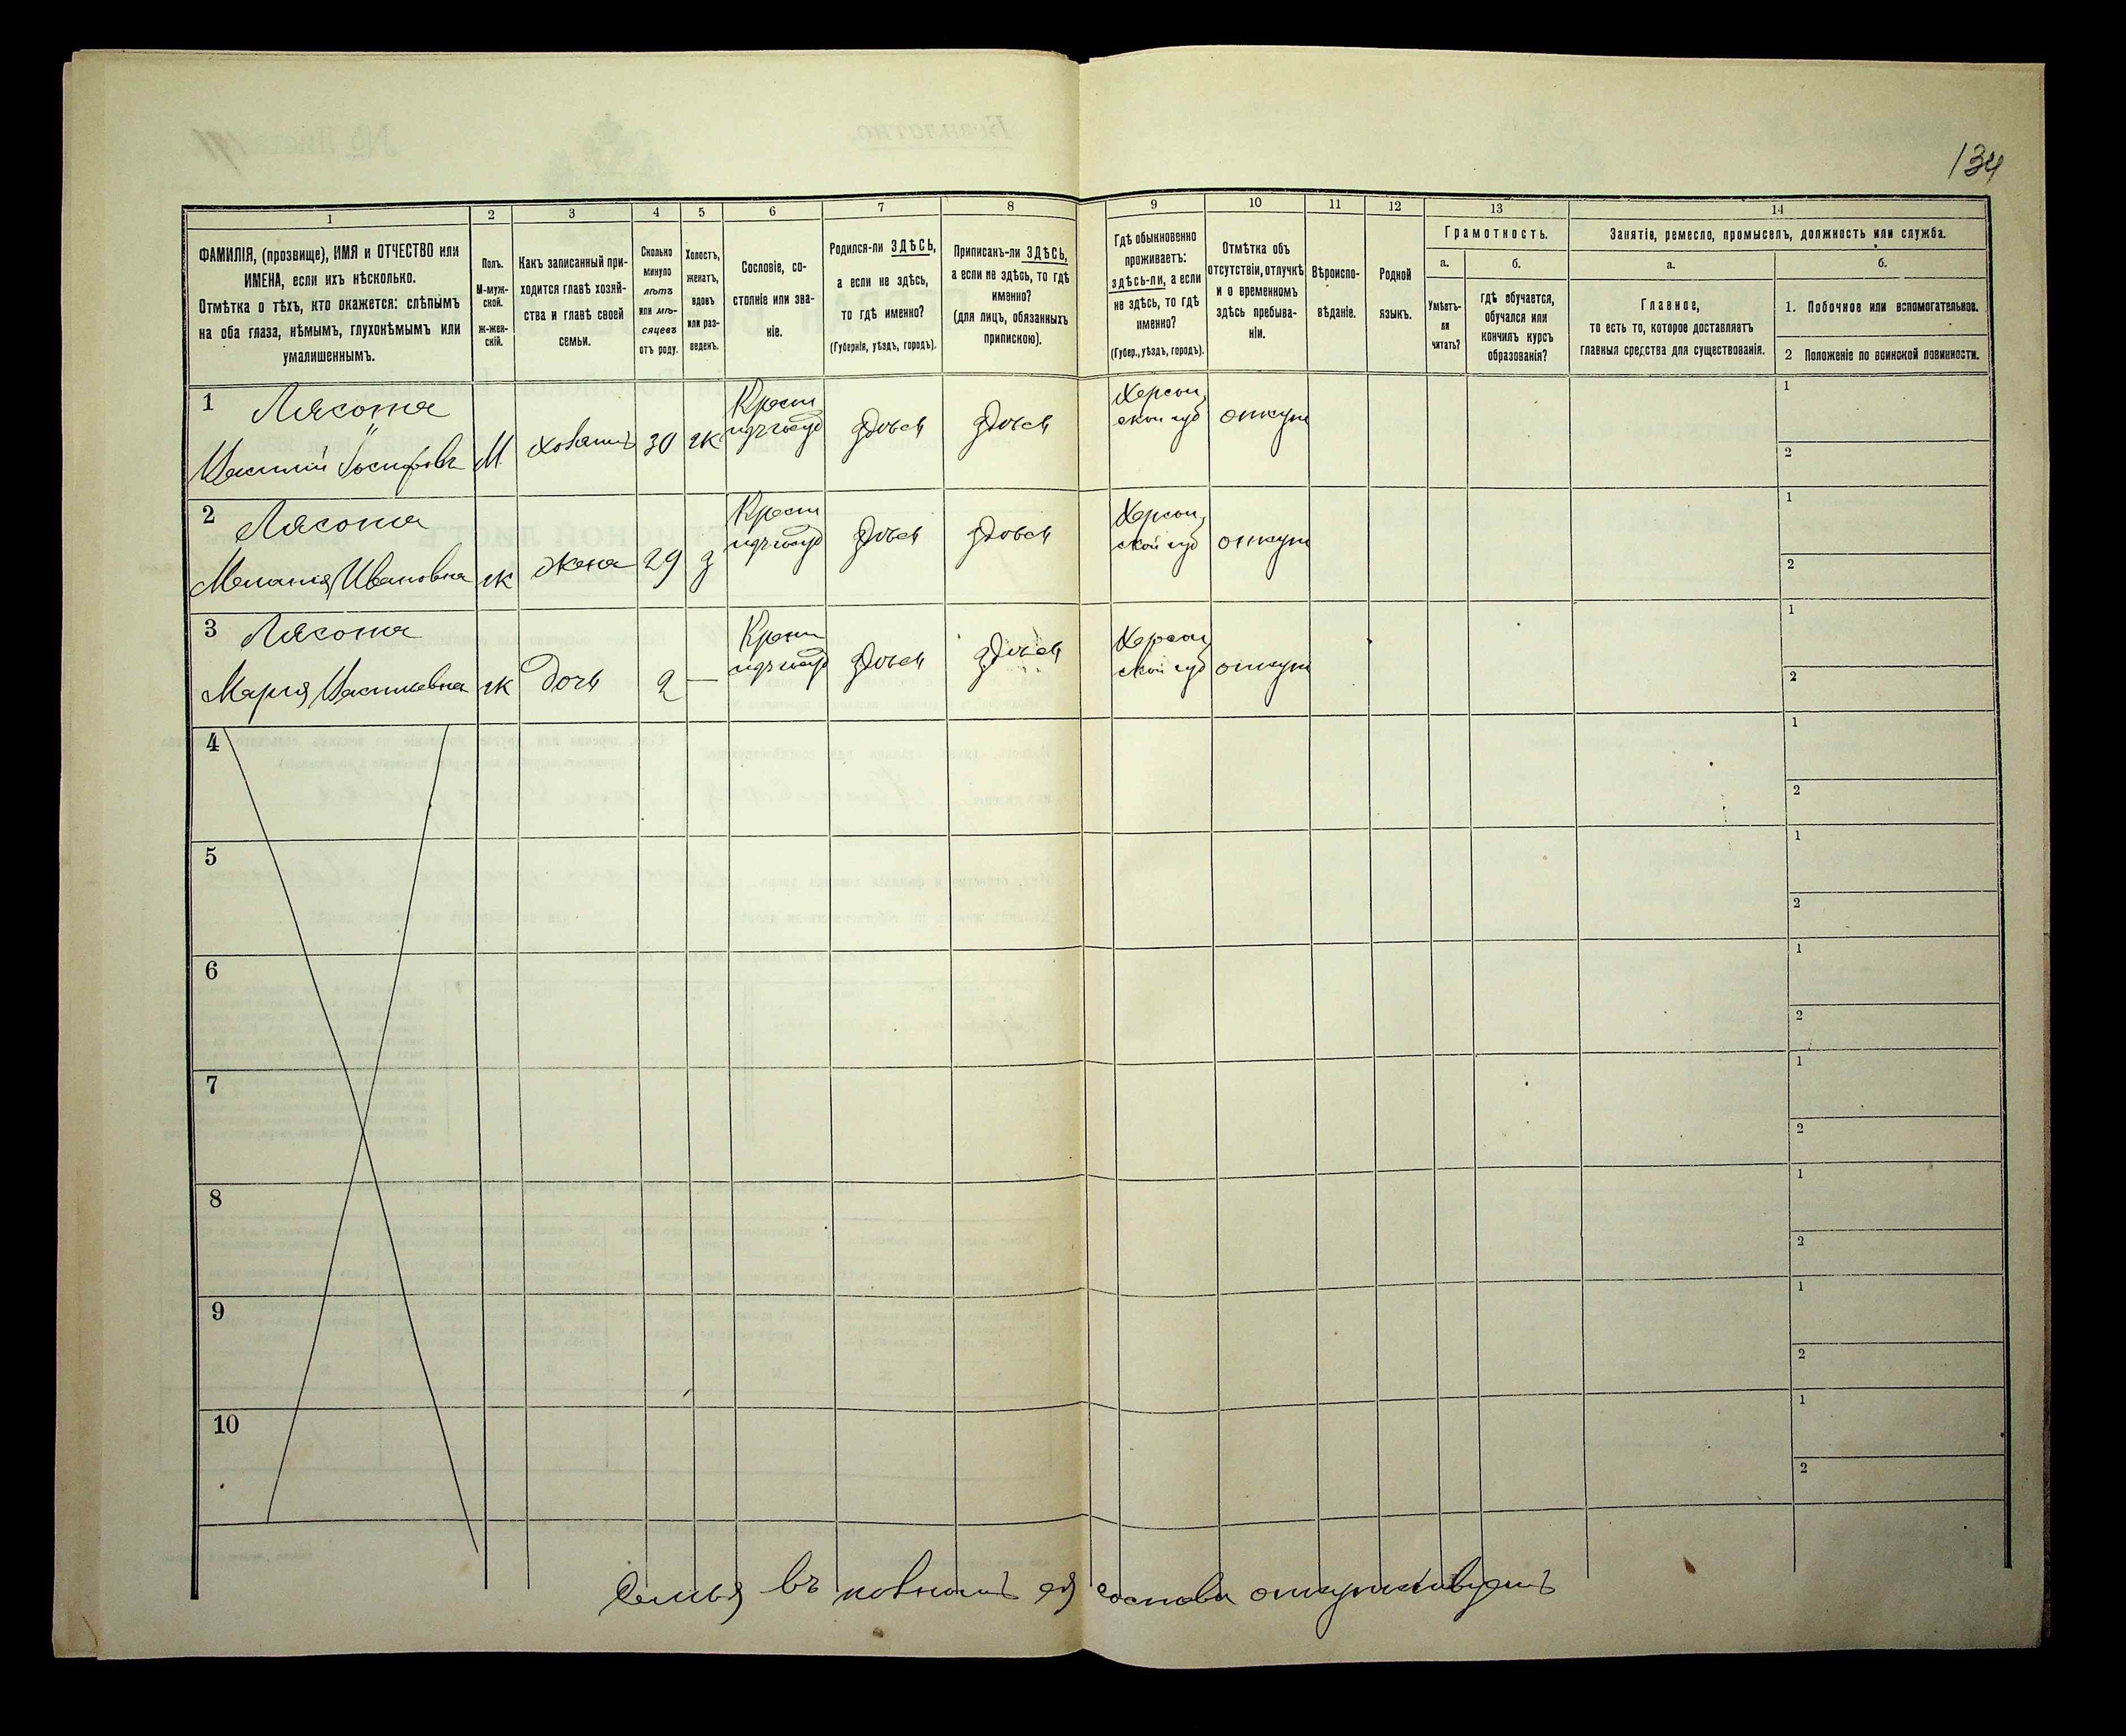 134
1 2 3 4 5 6 7 8 9 10 11 12 13 14
ФАМИЛІЯ, (прозвище), ИМЯ и ОТЧЕСТВО или
ИМЕНА, если ихъ нѣсколько.
Отмѣтка о тѣхъ, кто окажется: слѣпымъ
на оба глаза, нѣмымъ, глухонѣмымъ или
умалишеннымъ.
Полъ.
М-муж-
ской.
ж-жен-
скій.
Какъ записанный при-
ходится главѣ хозяй-
ства и главѣ своей
семьи.
Сколько
минуло
лѣтъ
или мѣ-
сяцевъ
отъ роду.
Холостъ,
женатъ,
вдовъ
или раз-
веденъ.
Сословіе, со-
стояніе или зва-
ніе.
Родился-ли ЗДѢСЬ,
а если не здѣсь,
то гдѣ именно?
(Губернія, уѣздъ, городъ).
Приписанъ-ли ЗДѢСЬ,
а если не здѣсь, то гдѣ
именно?
(для лицъ, обязанныхъ
припискою).
Гдѣ обыкновенно
проживаетъ:
здѣсь-ли, а если
не здѣсь, то гдѣ
именно?
(Губер., уѣздъ, городъ).
Отмѣтка объ
отсутствіи, отлучкѣ
и о временномъ
здѣсь пребыва-
ніи.
Вѣроиспо-
вѣданіе.
Родной
языкъ.
Грамотность.
а.
Умѣетъ-
ли
читать?
б.
гдѣ обучается,
обучался или
кончилъ курсъ
образованія?
Занятіе, ремесло, промыселъ, должность или служба.
а.
Главное,
то есть то, которое доставляетъ
главныя средства для существованія.
б.
1. Побочное или вспомогательное.
2 Положеніе по воинской повинности.
1 Лясота
Василій Іосифовъ М хозяинъ 30 ж Крест изъ госуд здѣсь здѣсь Херсон ской губ отсут
1
2
2 Лясота
Меланія Ивановна ж жена 29 з Крест изъ госуд здѣсь здѣсь Херсон ской губ отсут
1
2
3 Лясота
Марія Васильевна ж дочь 2 — Крест изъ госуд здѣсь здѣсь Херсон ской губ отсут
1
2
4
1
2
5
1
2
6
1
2
7
1
2
8
1
2
9
1
2
10
1
2
Семья въ полномъ ея составѣ отсутствуетъ